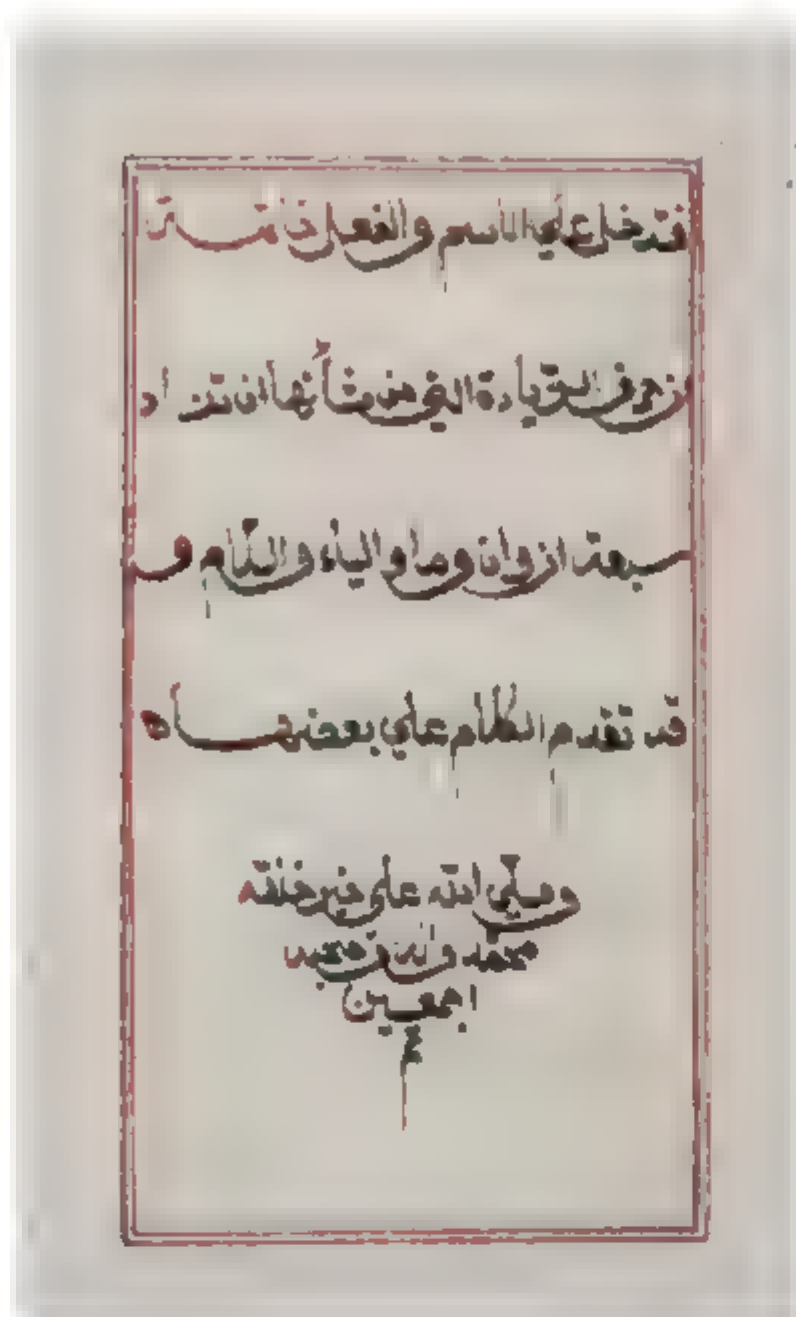 فتدخل علي الاسم والفعل خاتمــة
من حروف الزيادة التي من شأنها ان تزاد
سبعة ان وان وما والباء واللام و
قد تقدم الكلام علي بعضهــا ه
وصلّي الله علي خير خلقه
محمّد واله وصحبه
اجمعين
م